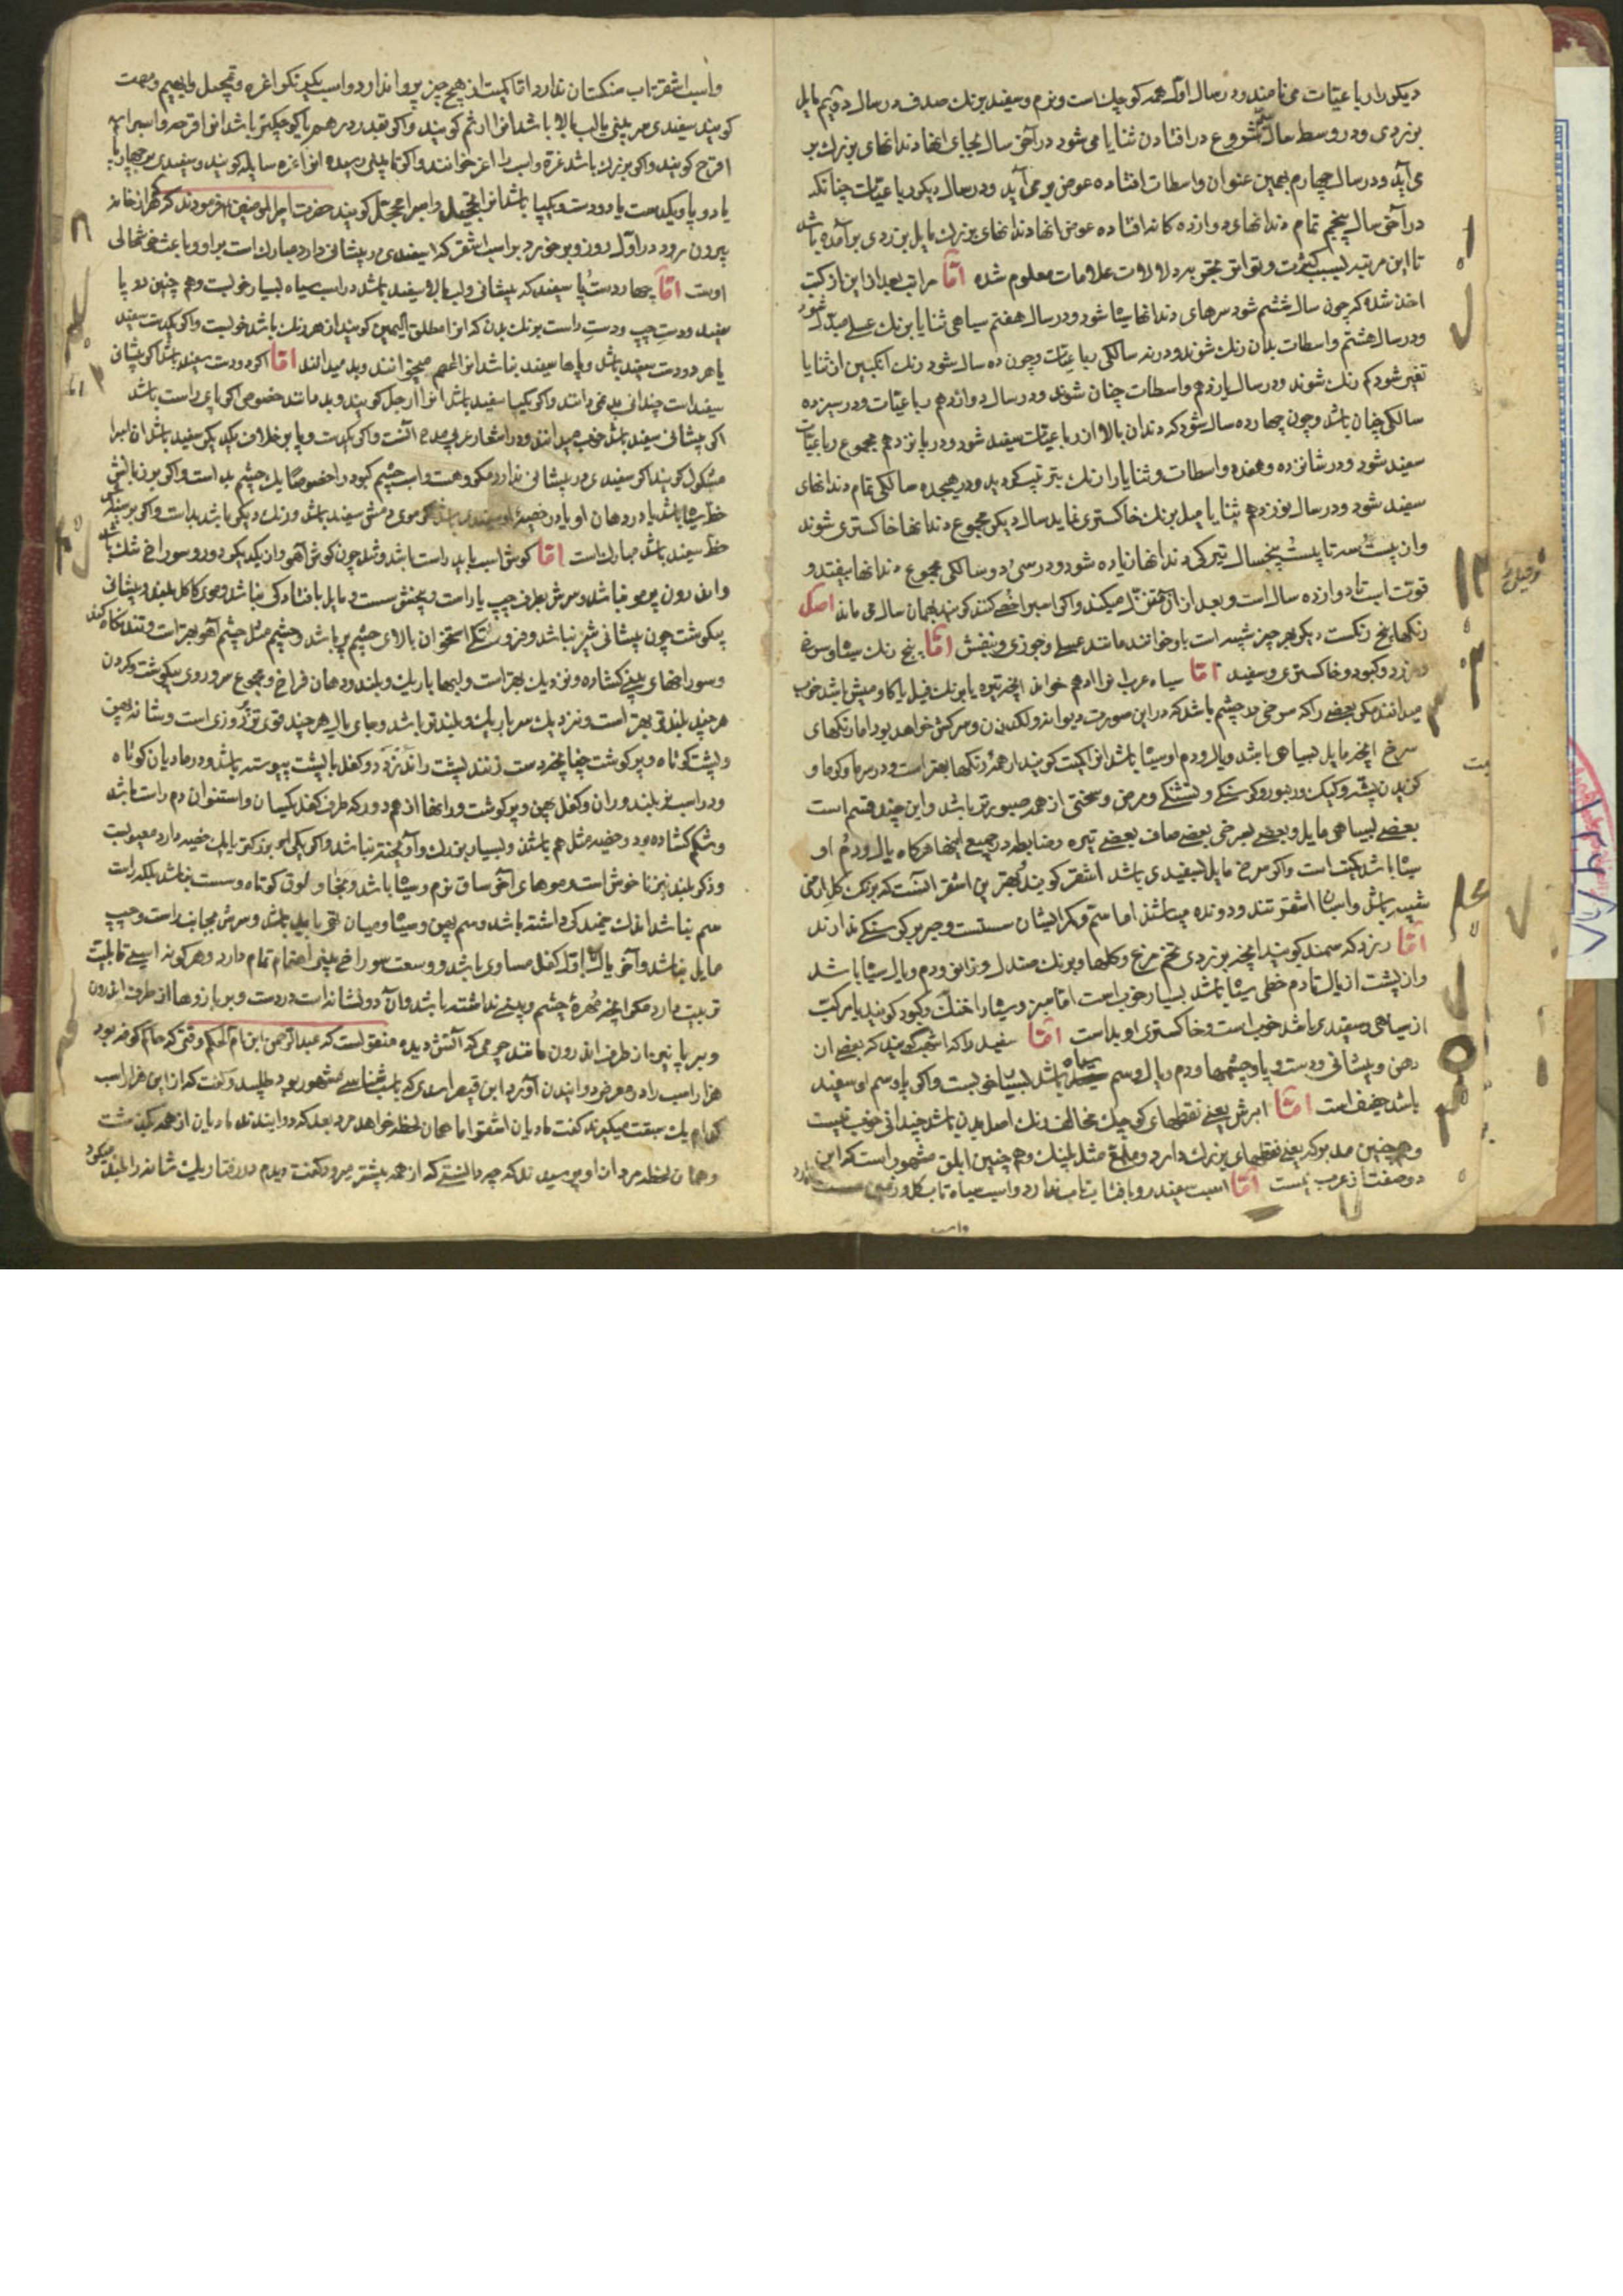 دیکر را رباعیات می نامند و در سال اول همه کوچک است و نرم و سفید برنک صدف و در سال دویم مایل
بزردی و در وسط سال شروع در افتادن ثنایا می شود در آخر سال بجای انها دندانهای بزرک بر
می آید و در سال چهارم بهمین عنوان واسطات افتاده عوض بر می آید و در سال دیکر رباعیات چنانکه
در آخر سال پنجم تمام دندانهای دوازده کانه افتاده عوض انها دندانهای بزرک مایل بزردی برآمده باشد
تا این مرتبه بسبب کثرت و تواتر تجربه دلالات علامات معلوم شده اما مراتب بعد از این از کتب
اخذ شده که چون سال ششم شود سرهای دندانها سیاه شود و در سال هفتم سیاهی ثنایا برنک عسلی مبدل شود
و در سال هشتم واسطات بدان رنک شوند و در نه سالکی رباعیات و چون ده سال شود رنک انکبین ان ثنایا
تغیر شود کم رنک شوند و در سال یازدهم واسطات چنان شوند و در سال دوازدهم رباعیات و در سیزده
سالکی چنان باشد و چون چهارده سال شود که دندان بالا از رباعیات سفید شود و در پانزدهم مجموع رباعیات
سفید شود و در شانزده و هفده واسطات و ثنایا از ان رنک بترتیب کردید و در هیجده سالکی تمام دندانهای
سفید شود و در سال نوزدهم ثنایا میل برنک خاکستری نماید سال دیکر مجموع دندانها خاکستری شوند
و از بیست سه تا بیست پنجسال تیرکی دندانها زیاده شود و در سی و دو سالکی مجموع دندانها بیفتد و
قوت اسب تا دوازده سال است و بعد از ان تنزل میکند و اکر اسبرا خصی کنند کویند بهمان سال می ماند اصل
رنکها پنج رنکست دیکر هر چیز شبیه است باو خوانند مانند عسلی و جوزی و بنفش اما پنج رنک سیاه و سرخ
و زرد و کبود و خاکستری و سفید اما سیاه عرب انرا ادهم خواند انچه تیره یا برنک فیل یا کاومیش باشد خوب
میدانند مکر بعضی را که سرخی در چشم باشد که در این صورت دیوانه و لکد زن و سرکش خواهد بود اما رنکهای
سرخ انچه مایل بسیاهی باشد و یال و دم او سیاه باشد انرا کمیت کویند از همه رنکها بهتر است و در سرما و کرما و
کزیدن پشه و کیک و زنبور و کرسنکی و تشنکی و مرض و سختی از همه صبورتر باشد و این چند قسم است
بعضی بسیاهی مایل و بعضی بسرخی بعضی صاف بعضی تیره و ضابطه در جمیع اینها هرکاه یال و دم او
سیاه باشد کمیت است و اکر سرخ مایل بسفیدی باشد اشقر کویند بهترین اشقر انست که برنک کل ارمنی
شبیه باشد و اسبان اشقر تند و دونده میباشند اما سم و کمر ایشان سست و صبر بر کرسنکی ندارند
اما زرد که سمند کویند انچه بزردی تخم مرغ و کلها و برنک صندل و زانو و دم و یال سیاه باشد
و از پشت از یال تا دم خطی سیاه باشد بسیار خوب است اما سبز و سیاه را خنک و کبود کویند یا مرکب
از سیاهی و سفیدی باشد خوب است و خاکستری او بد است اما سفید را که اشهب کویند که بعضی ان
دهن و پیشانی و دست و پا و چشمها و دم و یال و سم سیاه باشد بسیار خوبست و اکر پا و سم او سفید
باشد ضعیف است اما ابرش یعنی نقطهای کوچک مخالف رنک اصل بدن باشد چندانی خوب نیست
و هم چنین مدنر که یعنی نقطهای بزرک دارد و ملمع مثل پلنک و هم چنین ابلق مشهور است که این
دو صفت از عرب نیست اما اسب سفید رو بافتاب تاب ندارد و اسب سیاه تاب کل و زمین سست ندارد
و اسب
و اسب اشقر تاب سنکستان ندارد اما کمیت از هیچ چیز پروا ندارد و اسب یکرنک را اغره و محجل و بهیم و مصمت
کویند سفیدی سر بینی یا لب بالا باشد انرا ارثم کویند و اکر بقدر درهم یا کوچکتر باشد انرا قرحه و اسب را
اقرح کویند و اکر بزرک باشد غره و اسب را اغر خوانند و اکر تا بینی رسیده انرا غره سایله کویند و سفیدی بر چهار پا
یا دو پا و یکدست یا دو دست و یکپا باشد انرا تحجیل و اسب را محجل کویند حضرت امیر المومنین فرمودند که هر که از خانه
بیرون رود در اول روز و بر خورد بر اسب اشقر که سفیدی در پیشانی دارد مبارک است بر او و باعث خوشحالی
اوست اما چهار دست و پا سفید که پیشانی و لب بالا سفید باشد در اسب سیاه بسیار خوبست و هم چنین دو پا
سفید و دست چپ و دست راست برنک بدن که انرا مطلق الیمین کویند از هر رنک باشد خوبست و اکر یکدست سفید
یا هر دو دست سفید باشد و پاها سفید نباشد انرا اعصم میخوانند و بد میدانند اما اکر دو دست سفید باشد اکر پیشانی
سفید است چندانی بد نمی دانند و اکر یکپا سفید باشد انرا ارجل کویند و بد مانند خصوص اکر پای راست باشد
اکر پیشانی سفید باشد خوب میدانند و در اشعار عرب مدح انست و اکر یکدست و پا بر خلاف یکدیکر سفید باشد ان اسبرا
مشکول کویند اکر سفیدی در پیشانی ندارد مکروهست و اسب چشم کبود را خصوصا یک چشم بد است و اکر بر زبانش
خط سیاه باشد یا در دهان او یا در خصیه او سفیدی باشد که موی دمش سفید باشد و رنک دیکر باشد بد است و اکر بر سینه
خط سفید باشد مبارک است اما کوش اسب باید راست باشد و تند چون کوش آهو و از یکدیکر دور و سوراخ تنک باشد
و اندرون پر مو نباشد و سرش بطرف چپ یا راست و بیخش سست و مایل بافتادکی نباشد و موی کاکل بلند و پیشانی
پر کوشت چون پیشانی شیر نباشد و فرو رفتکی استخوان بالای چشم پر باشد و چشم مثل چشم آهو بهتر است و تند نکاه کند
و سوراخهای بینی کشاده و نزدیک بهتر است و لبها باریک و بلند و دهان فراخ و مجموع سر و روی بیکوشت و کردن
هر چند بلندتر بهتر است و نزدیک سر باریک و بلندتر باشد و جای یال هر چند قوی تر روزی است و شانه پهن
و پشت کوتاه و پر کوشت چنانچه دست زنند پشت را ندزدد و کفل با پشت پیوسته باشد و در مادیان کوتاه
و در اسب نر بلند و ران و کفل پهن و پر کوشت و رانها از هم دور که طرف کفل یکسان و استخوان دم راست باشد
و شکم کشاده بود و خصیه مثل هم باشند و بسیار بزرک و آویخته نباشد و اکر یکی بزرکتر یا یک خصیه دارد معیوبست
و ذکر بلند نیز ناخوش است و موهای آخر ساق نرم و سیاه باشد و بخاولوق کوتاه و سست نباشد بلکه راست
سم نباشد اندک خمیدکی داشته باشد و سم پهن و سیاه و میان تهی باید باشد و سرش بجانب راست و چپ
مایل نباشد و آخر یال با اول کفل مساوی باشد و وسعت سوراخ بینی اهتمام تمام دارد و هر کونه اسبی قابلیت
تربیت دارد مکر انچه مهره چشم و بینی نداشته باشد و آن دو نشانه است در دست و بر بازوها از طرف اندرون
و بر پا نیز از طرف اندرون مانند چرمی که آتش دیده منقولست که عبد الرحمن ابن ام الحکم وقتی که حاکم کوفه بود
هزار اسب را در معرض دوانیدن آورد ابن قیصر اسدی که باسب شناسی مشهور بود طلبید و کفت که از این هزار اسب
کدام یک سبقت میکیرند کفت مادیان اشقر اما همان لحظه خواهد مرد بعد که دوانیدند مادیان از همه کذشت
و همان لحظه مرد از او پرسیدند که چه دانستی که از همه پیشتر میرود کفت دیدم در رفتار یک شانه را بلند میکرد